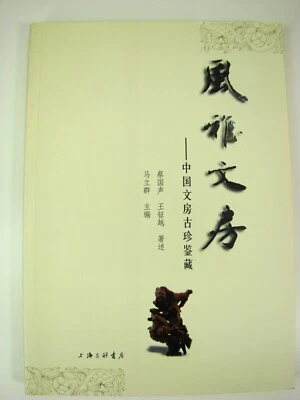 風雅文房
——中国文房古珍鉴藏
蔡国声 王征越 著述
马立群 主编
上海三联书店